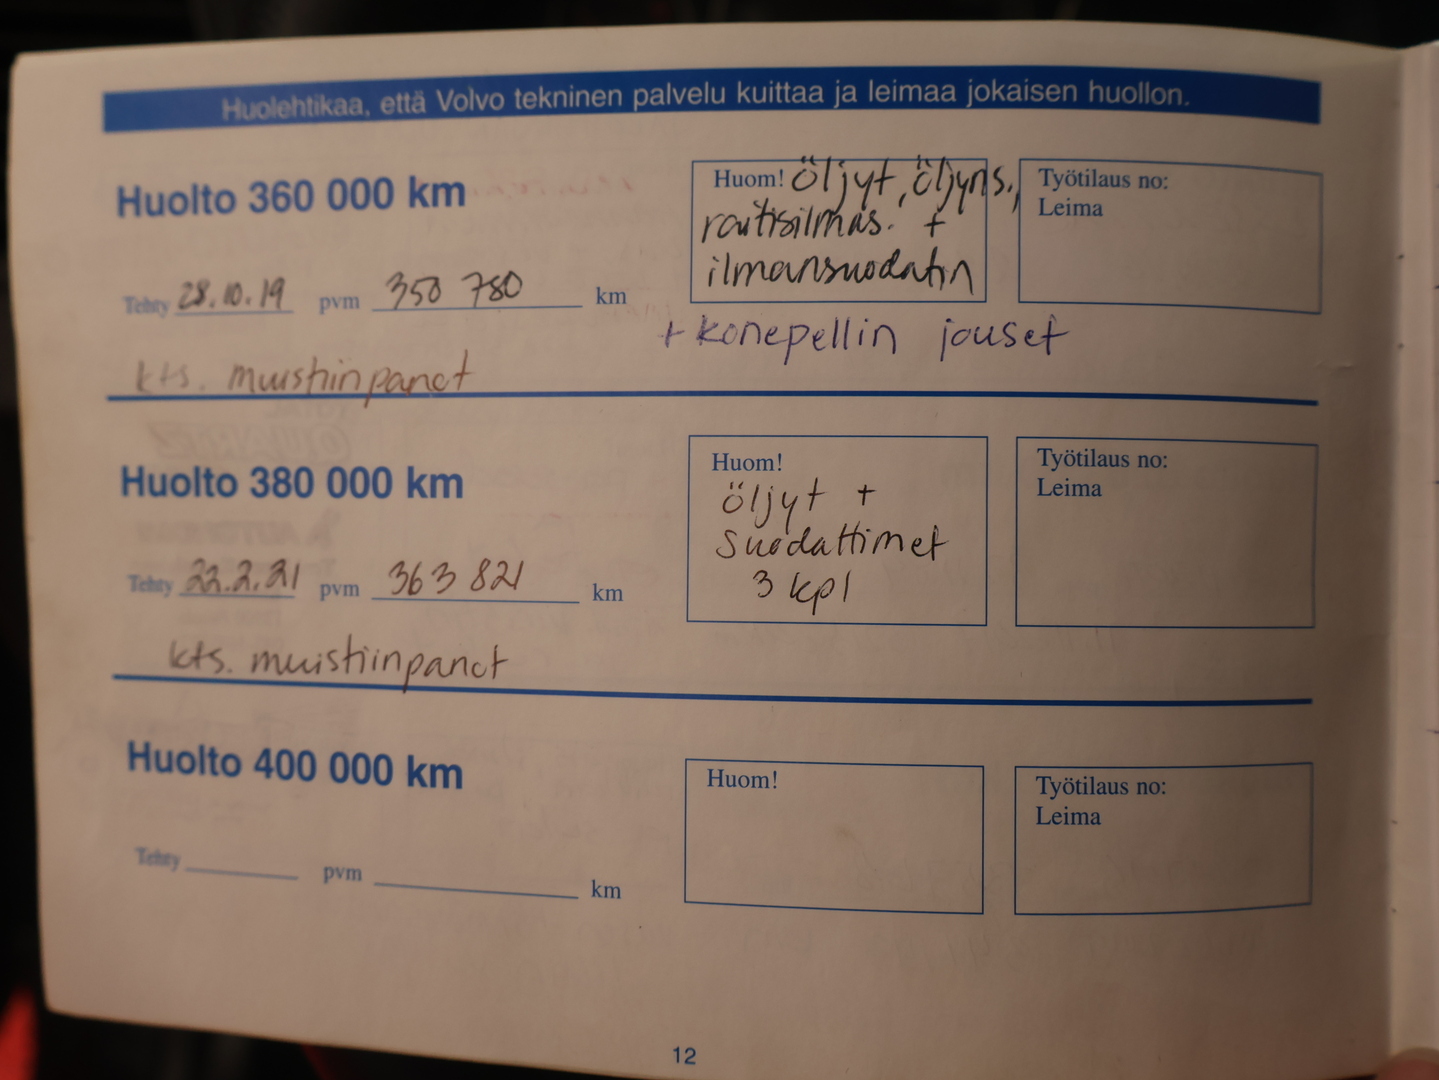 Huolehtikaa, että Volvo tekninen palvelu kuittaa ja leimaa jokaisen huollon.
Huolto 360 000 km
Huom! Öljyt, öljyns.,
raitisilmas. +
ilmansuodatin
Työtilaus no:
Leima
Tehty 28.10.19 pvm 350 780 km
+ konepellin jouset
kts. muistiinpanot
Huolto 380 000 km
Huom!
öljyt +
suodattimet
3 kpl
Työtilaus no:
Leima
Tehty 22.2.21 pvm 363 821 km
kts. muistiinpanot
Huolto 400 000 km
Huom!
Työtilaus no:
Leima
Tehty pvm km
12